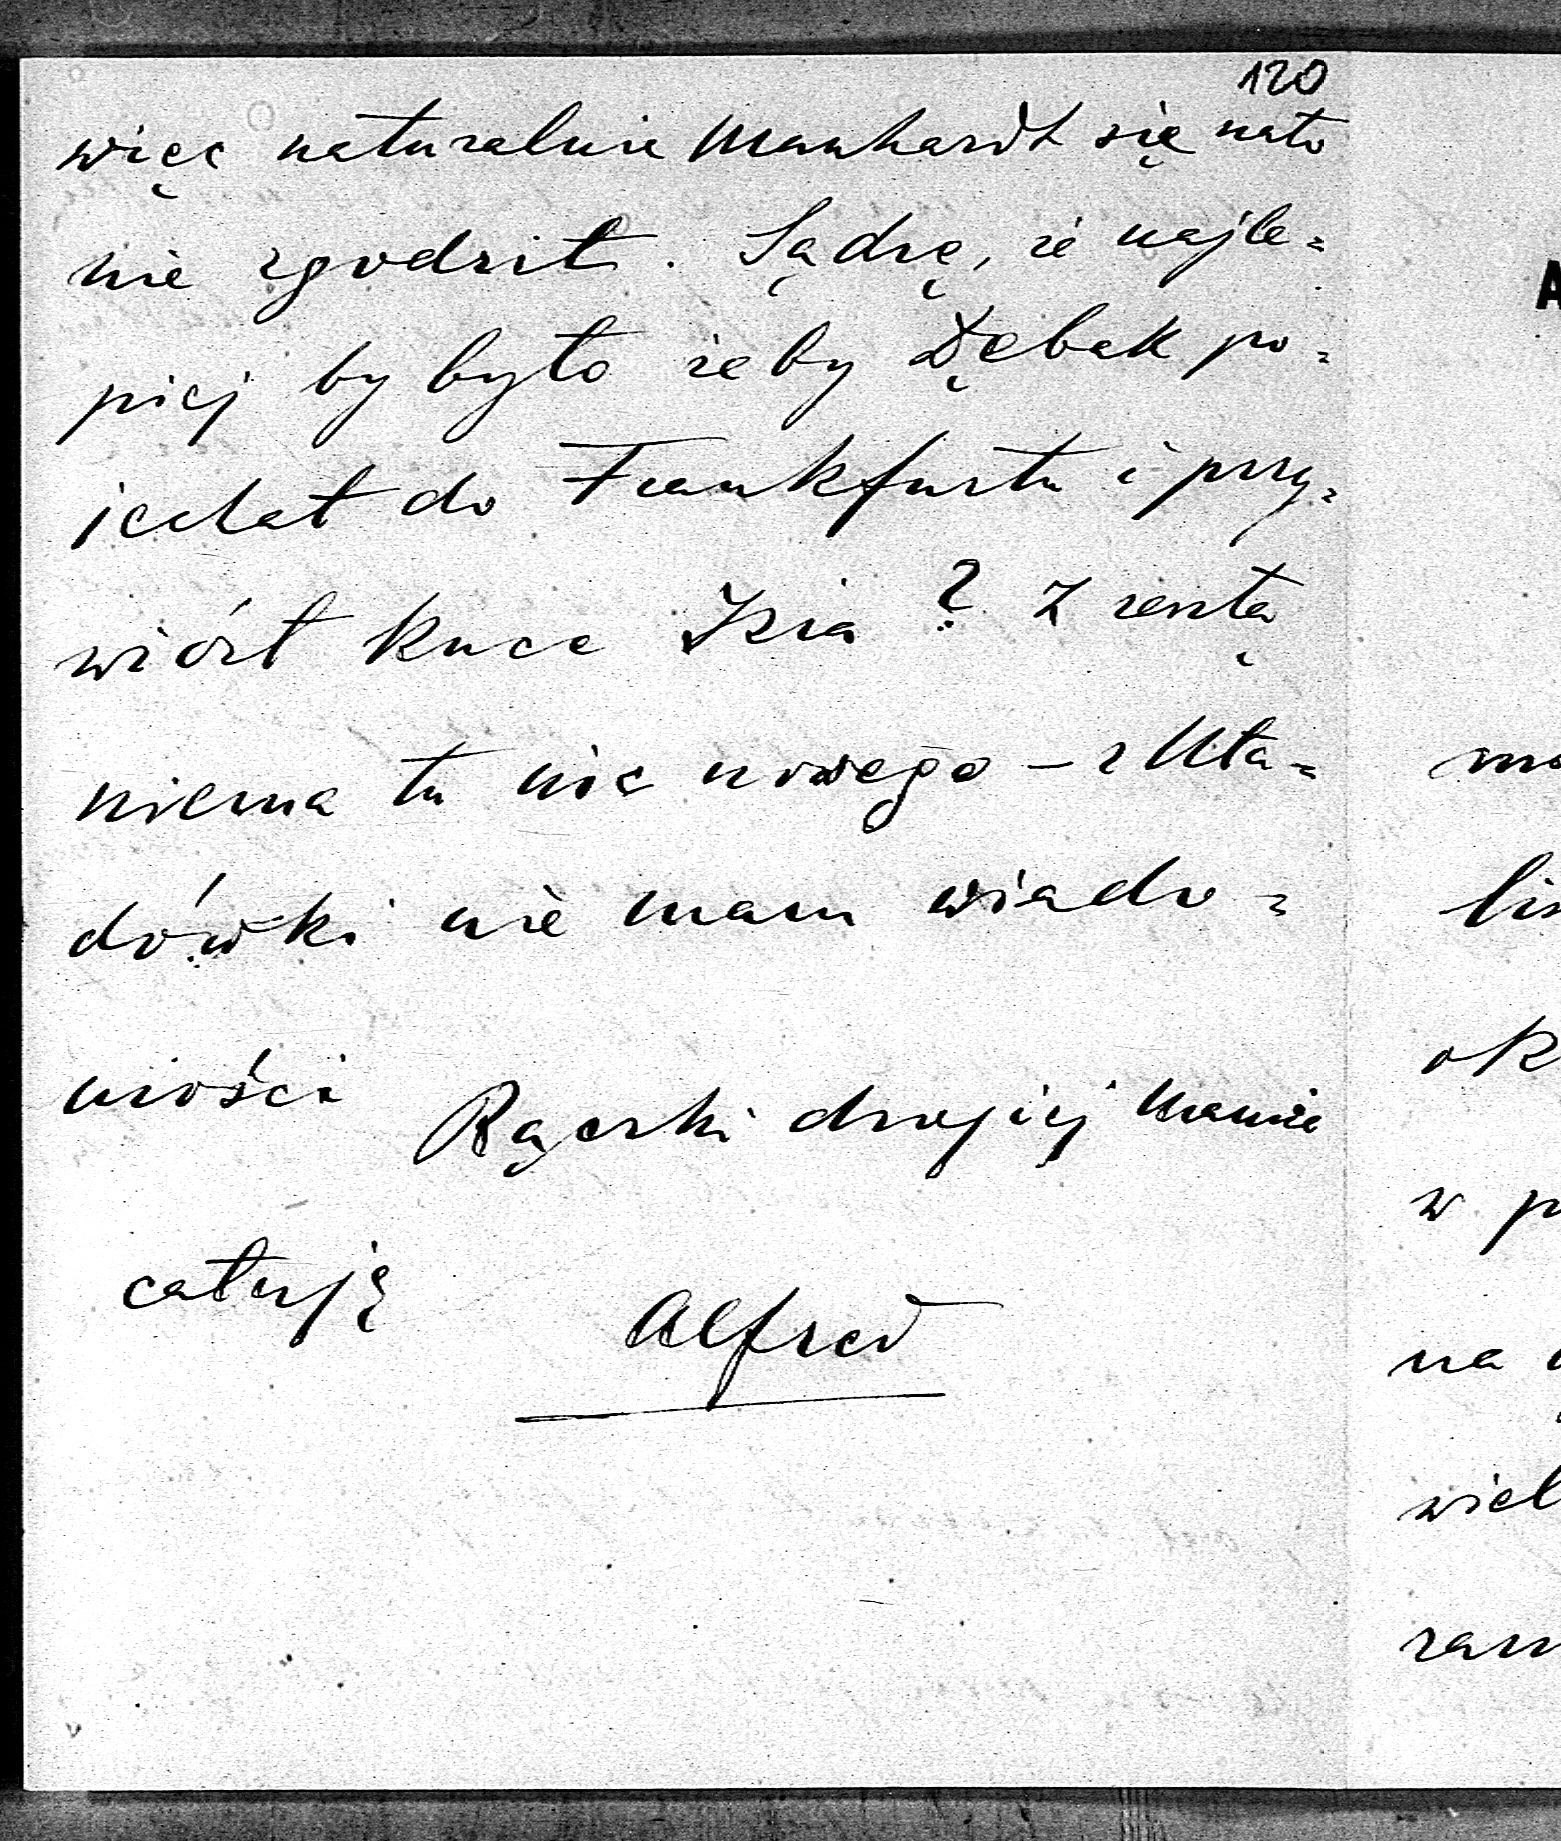 120
więc naturalnie Manhardt się nato
nie zgodził. Sądzę, że najle=
piej by było żeby Dębak po=
jechał do Frankfurtu i przy=
wiózł kuce Izia? Z resztą
niema tu nic nowego – z Mła=
dówki nie mam wiado=
mości
Rączki drogiej Mamie
całuję
Alfred
A
lis
ok
w p
na
wiel
zam